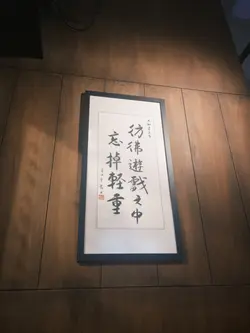 彷彿遊戲之中
忘掉輕重